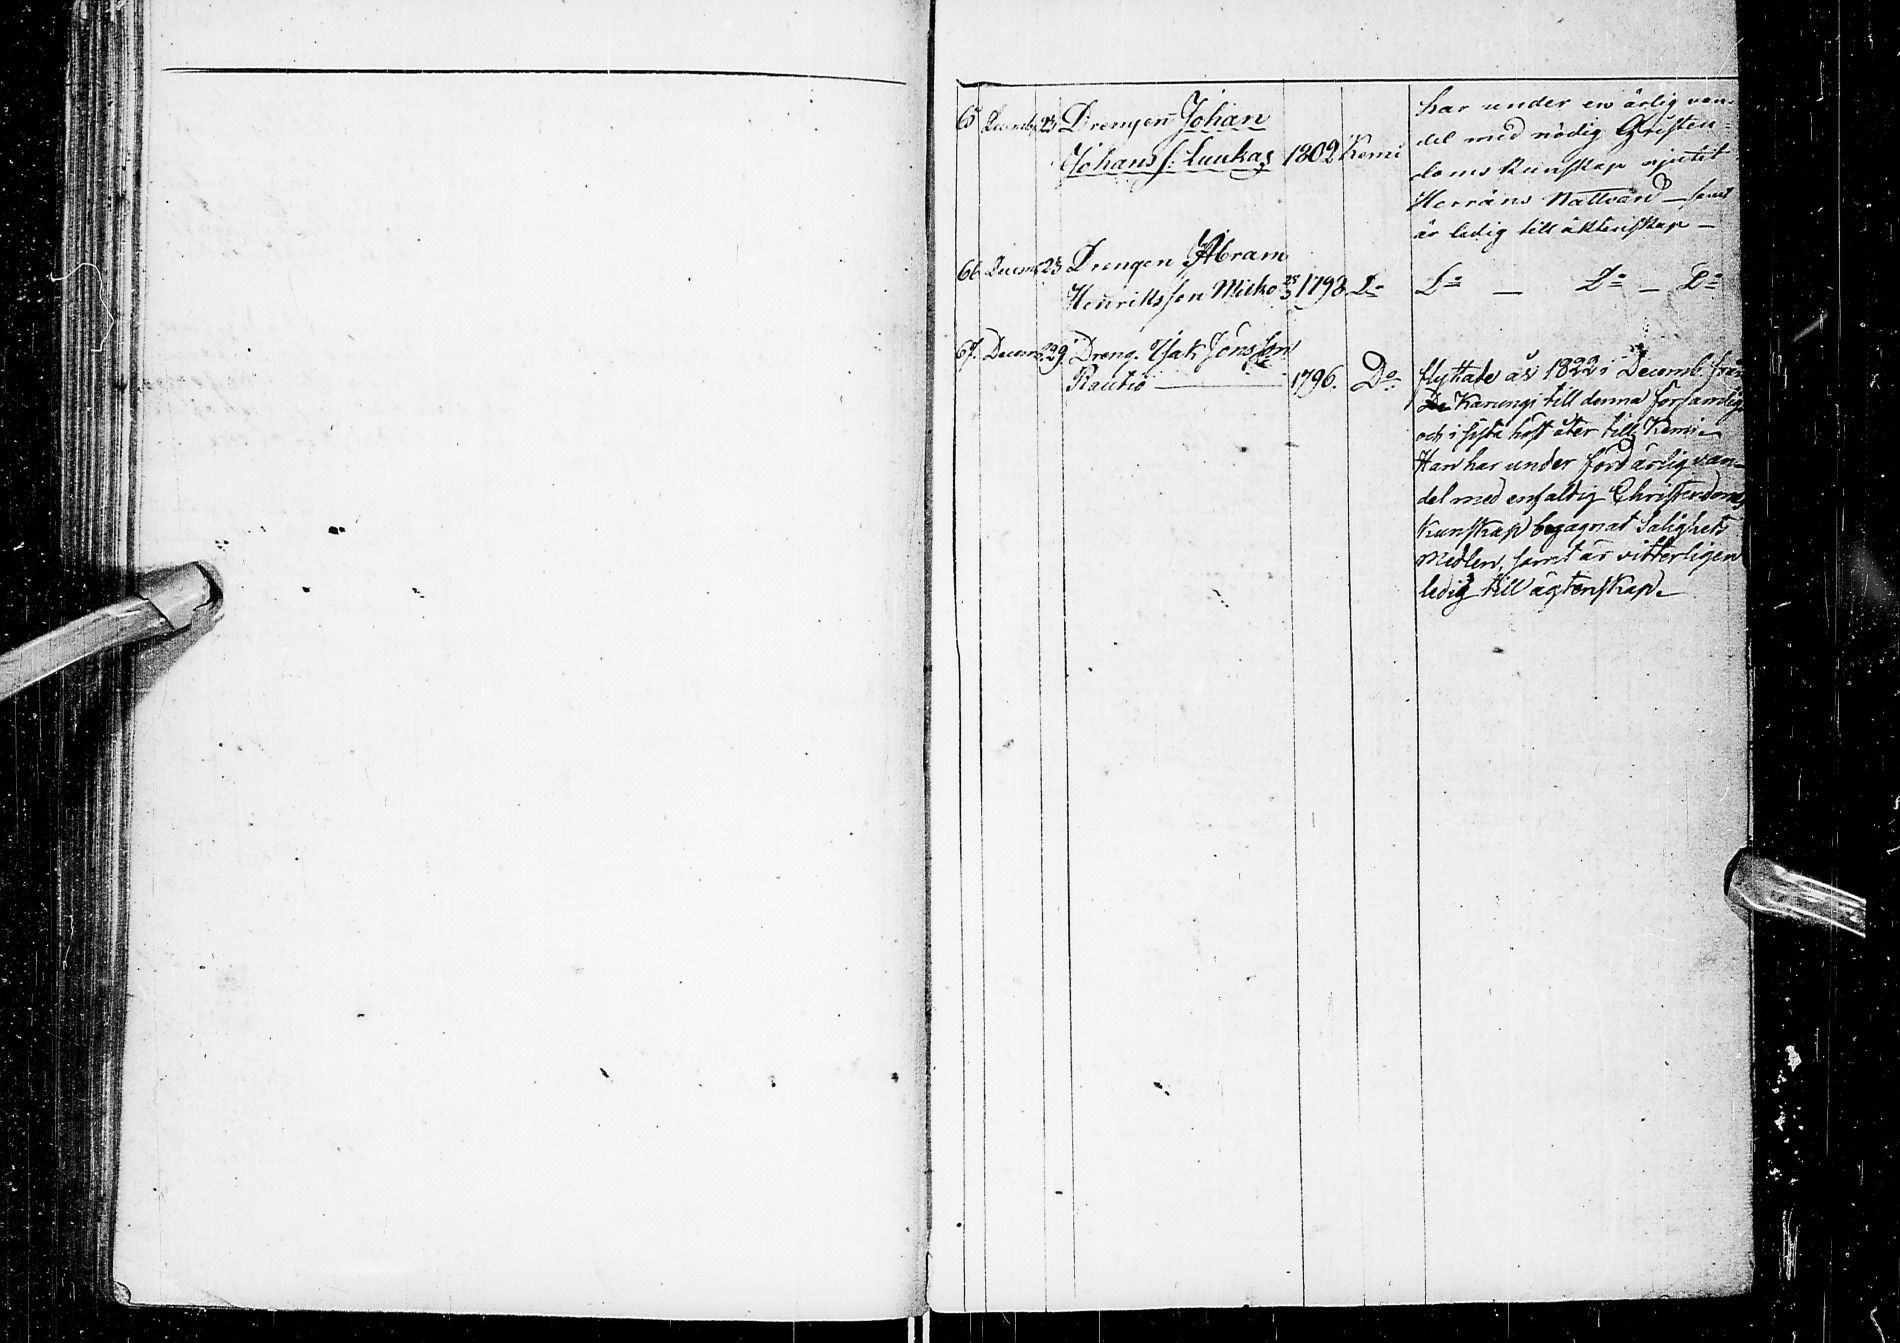 65 Decemb. 23 Drengen Johan
Johans s. Luukas 1802 Kemi
har under en ärlig van-
del med nödig Christen-
doms kunskap njutit
Herrans Nattvard — samt
är ledig till äktenskap —
66 Decemb. 23 Drengen Abram
Henriksson Micko 1793 Do
Do — Do — Do
67. Decemb. 29 Dreng. Isak Jönsson
Rautio — 1796. Do
flyttade år 1822 i Decemb. från
Karungi till denna församling
och i sista höst åter till Kemi.
Han har under förd ärlig van-
del med enfaldig Christendoms
Kunskap begagnat Salighets
Medlen, samt är vitterligen
ledig till ägtenskap.